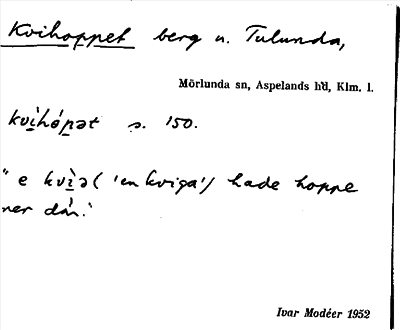 Kvihoppet berg u. Tulunda,
Mörlunda sn, Aspelands hd, Klm. l.
kvìhópət s. 150.
"e kvìə ('en kviga') hade hoppe
ner dän."
Ivar Modéer 1952